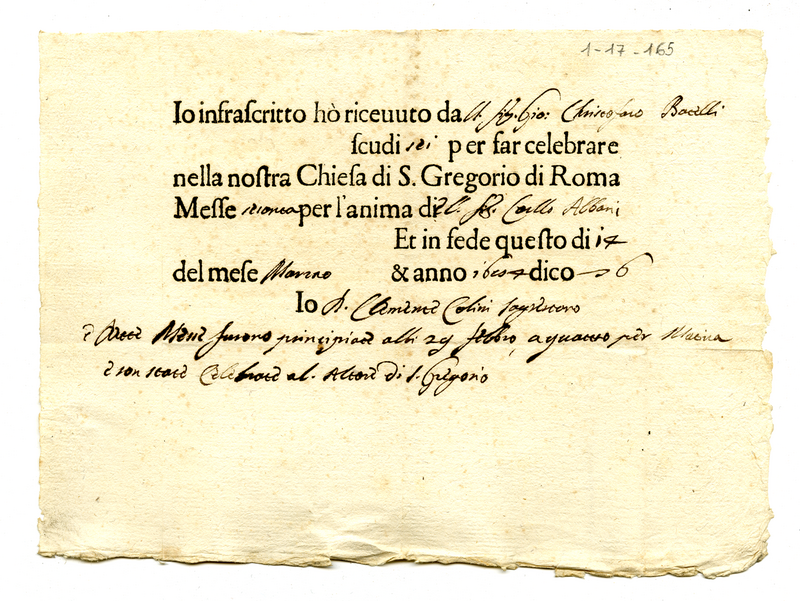 1-17-165
Io infraſcritto hò riceuuto dall Sig. Gio: Christofaro Bacelli
ſcudi sei per far celebrare
nella noſtra Chieſa di S. Gregorio di Roma
Meſſe per l'anima di Albani
Et in fede queſto di 14
del meſe Marzo & anno dico 6
Io D. Clemente Colini
e dette Messe furono principiate alli 29 febbro, a quatro per Matina
e son state Celebrate al Altare di S. Gregorio